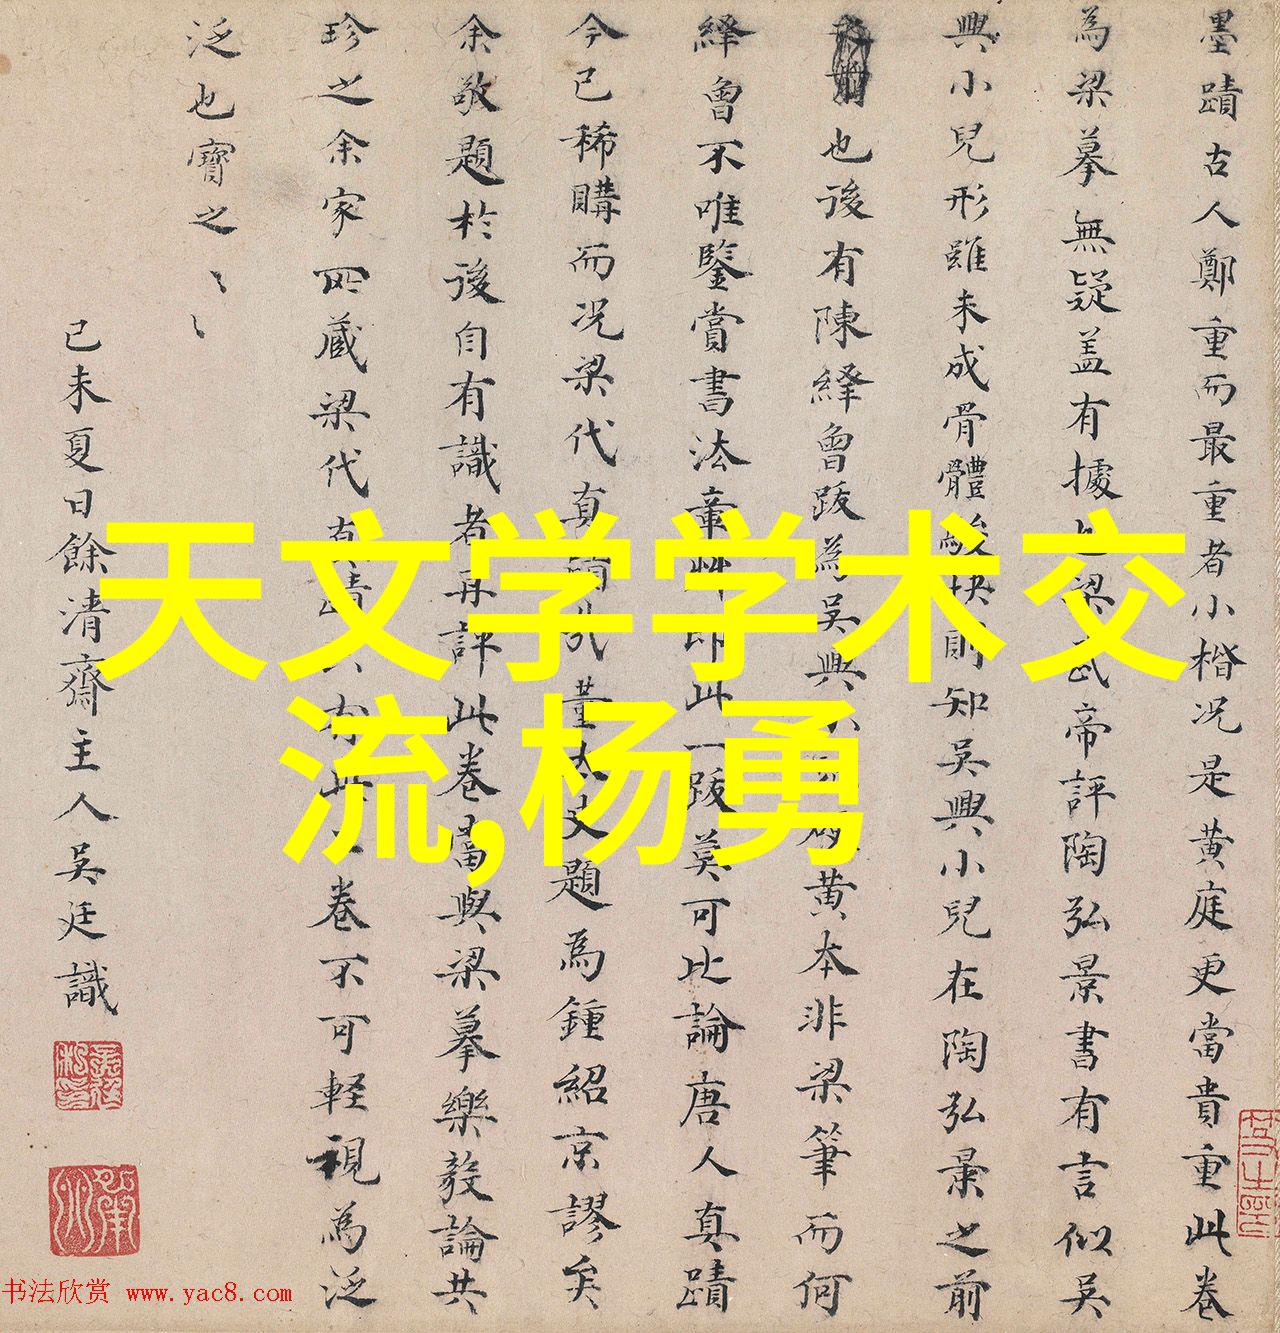 墨蹟古人鄭重而最重者小楷況是黃庭更當貴重此卷
為梁摹無疑盖有據也梁武帝評陶弘景書有言似吳
興小兒形雖未成骨體峻快則知吳興小兒在陶弘景之前
也後有陳繹曾跋為吳興黃本非梁筆而何
繹曾不唯鑒賞書法章艸即此一跋莫可比論唐人真蹟
今已稀購而況梁代真董太史題為鍾紹京謬矣
余敬題於後自有識者再評此卷當與梁摹樂毅論共
珍之余家所藏梁代真蹟有此卷不可輕視為泛
泛也寶之〻〻
己未夏日餘清齋主人吳廷識
天文学学术交
流,杨勇
书法欣赏 www.yac8.com